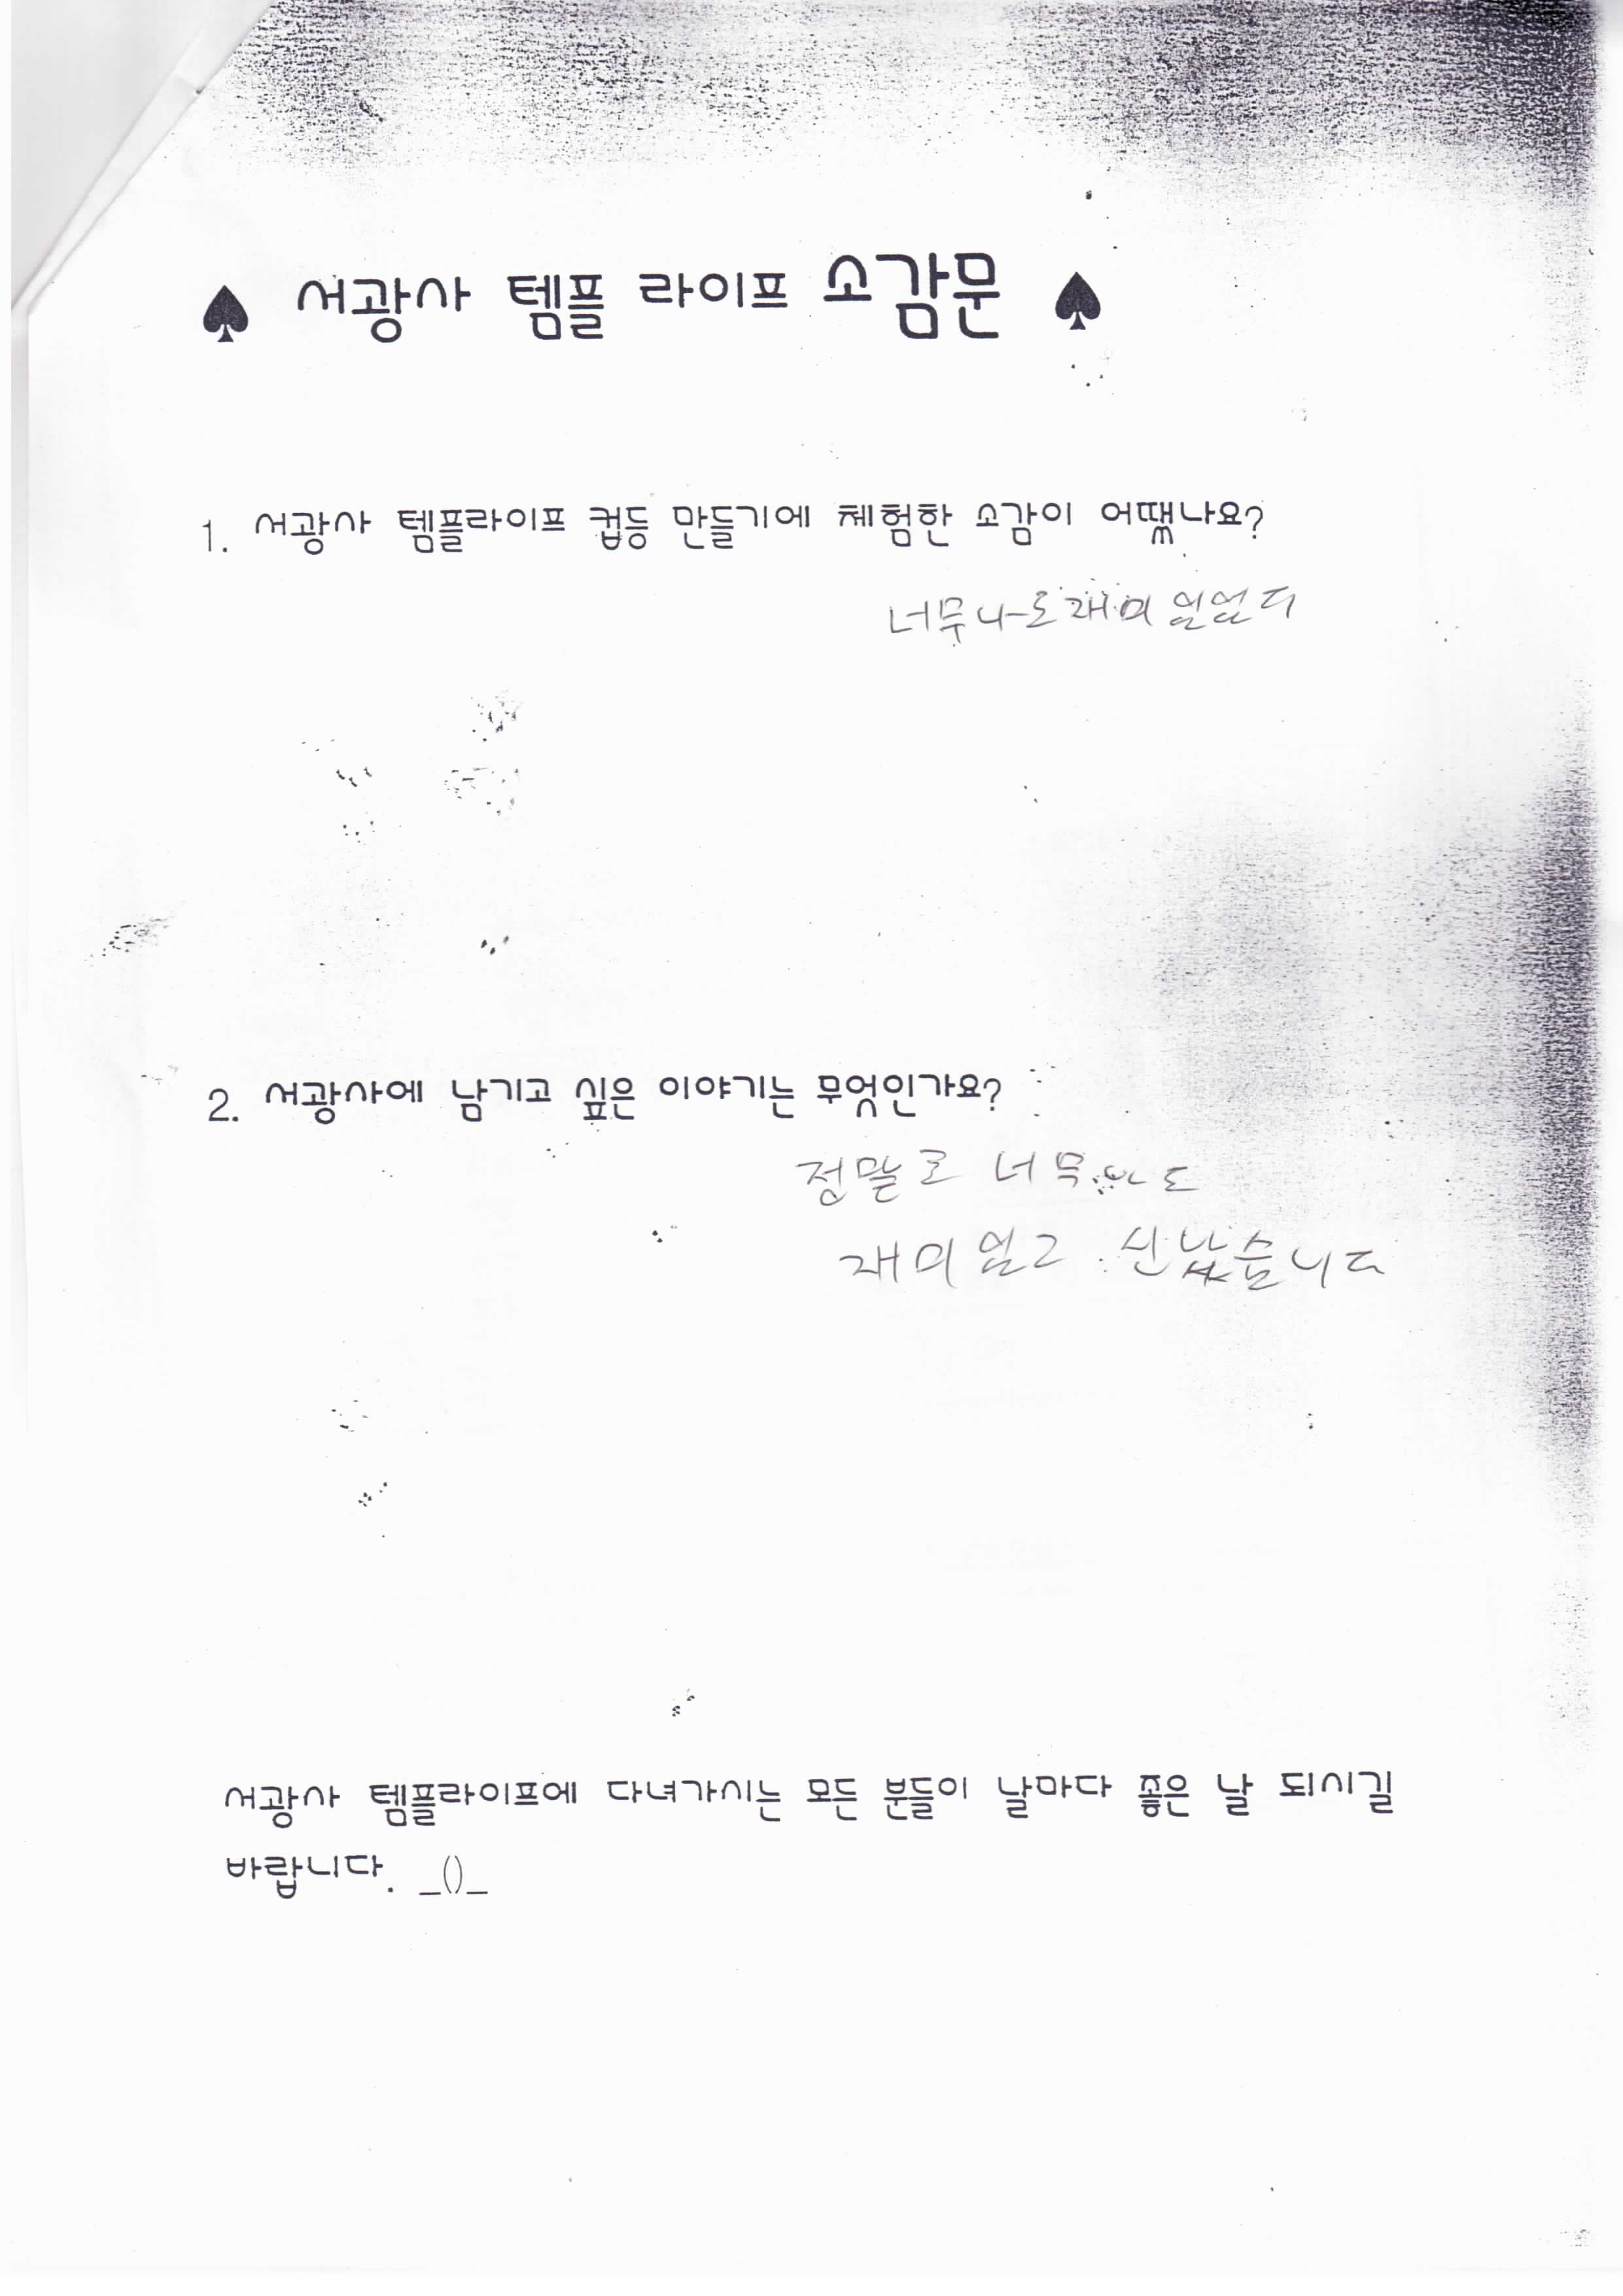 ♠ 서광사 템플 라이프 소감문 ♠
1. 서광사 템플라이프 컵등 만들기에 체험한 소감이 어땠나요?
너무나도재미있었다
2. 서광사에 남기고 싶은 이야기는 무엇인가요?
정말로 너무나도
재미있고 신났습니다
서광사 템플라이프에 다녀가시는 모든 분들이 날마다 좋은 날 되시길
바랍니다. _()_